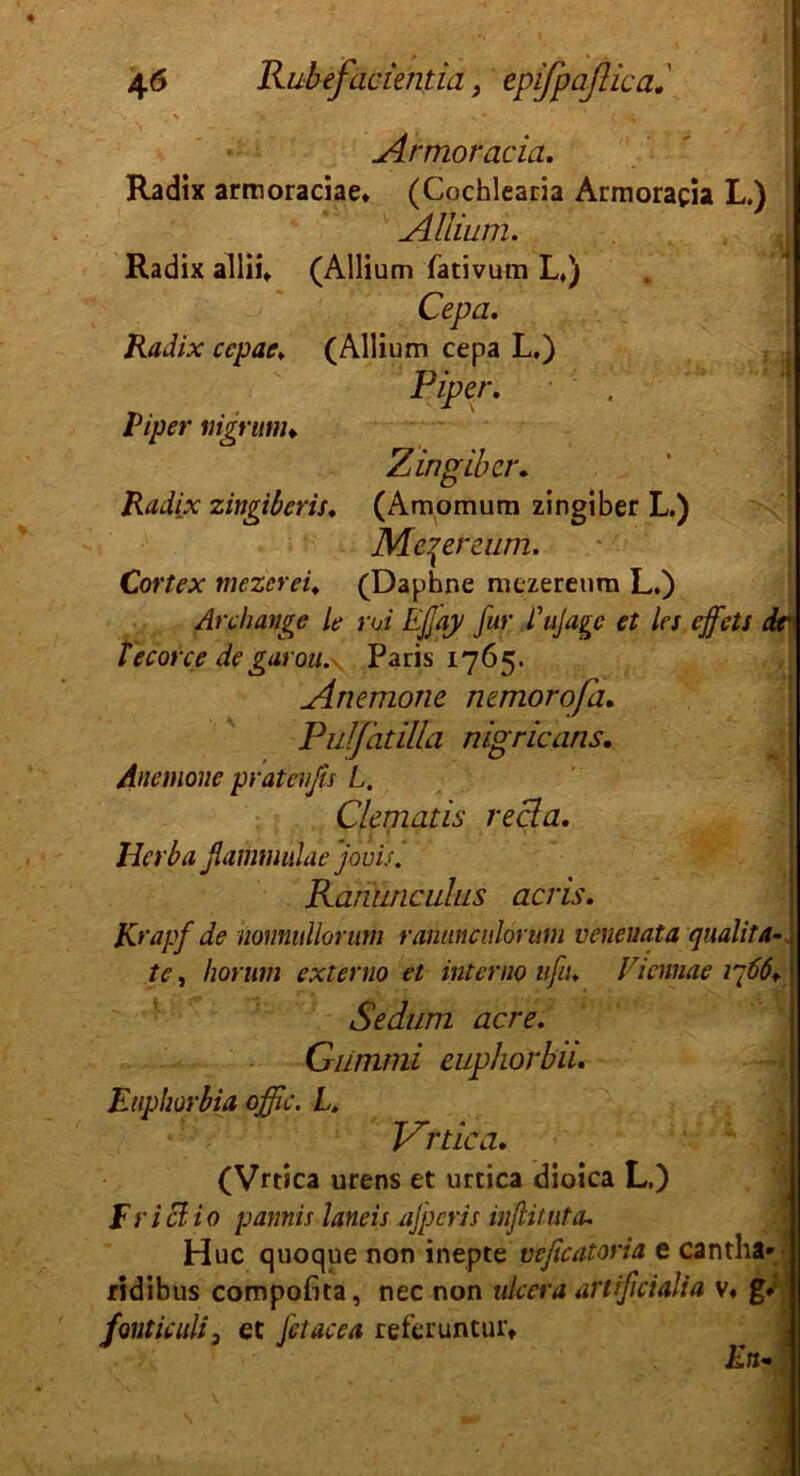 46 Rubefacientia, epiſpaſtica.
Armoracia.
Radix armoraciae. (Cochlearia Armoracia L.)
Allium.
Radix allii. (Allium ſativum L.)
Cepa.
Radix cepae. (Allium cepa L.)
Piper.
Piper nigrum.
Zingiber.
Radix zingiberis. (Amomum zingiber L.)
Mezereum.
Cortex mezerei. (Daphne mezereum L.)
Archange le roi Eſſay ſur l'uſage et les effets de
l'ecorce de garou. Paris 1765.
Anemone nemoroſa.
Pulſatilla nigricans.
Anemone pratenſis L.
Clematis recta.
Herba flammulae jovis.
Ranunculus acris.
Krapf de nonnullorum ranunculorum venenata qualita-
te, horum externo et interno uſu. Viennae 1766.
Sedum acre.
Gummi euphorbii.
Euphorbia offic. L.
Vrtica.
(Vrtica urens et urtica dioica L.)
Frictio pannis laneis aſperis inſtituta.
Huc quoque non inepte veſicatoria e cantha-
ridibus compoſita, nec non ulcera artificialia v. g.
fonticuli, et ſetacea referuntur.
En-